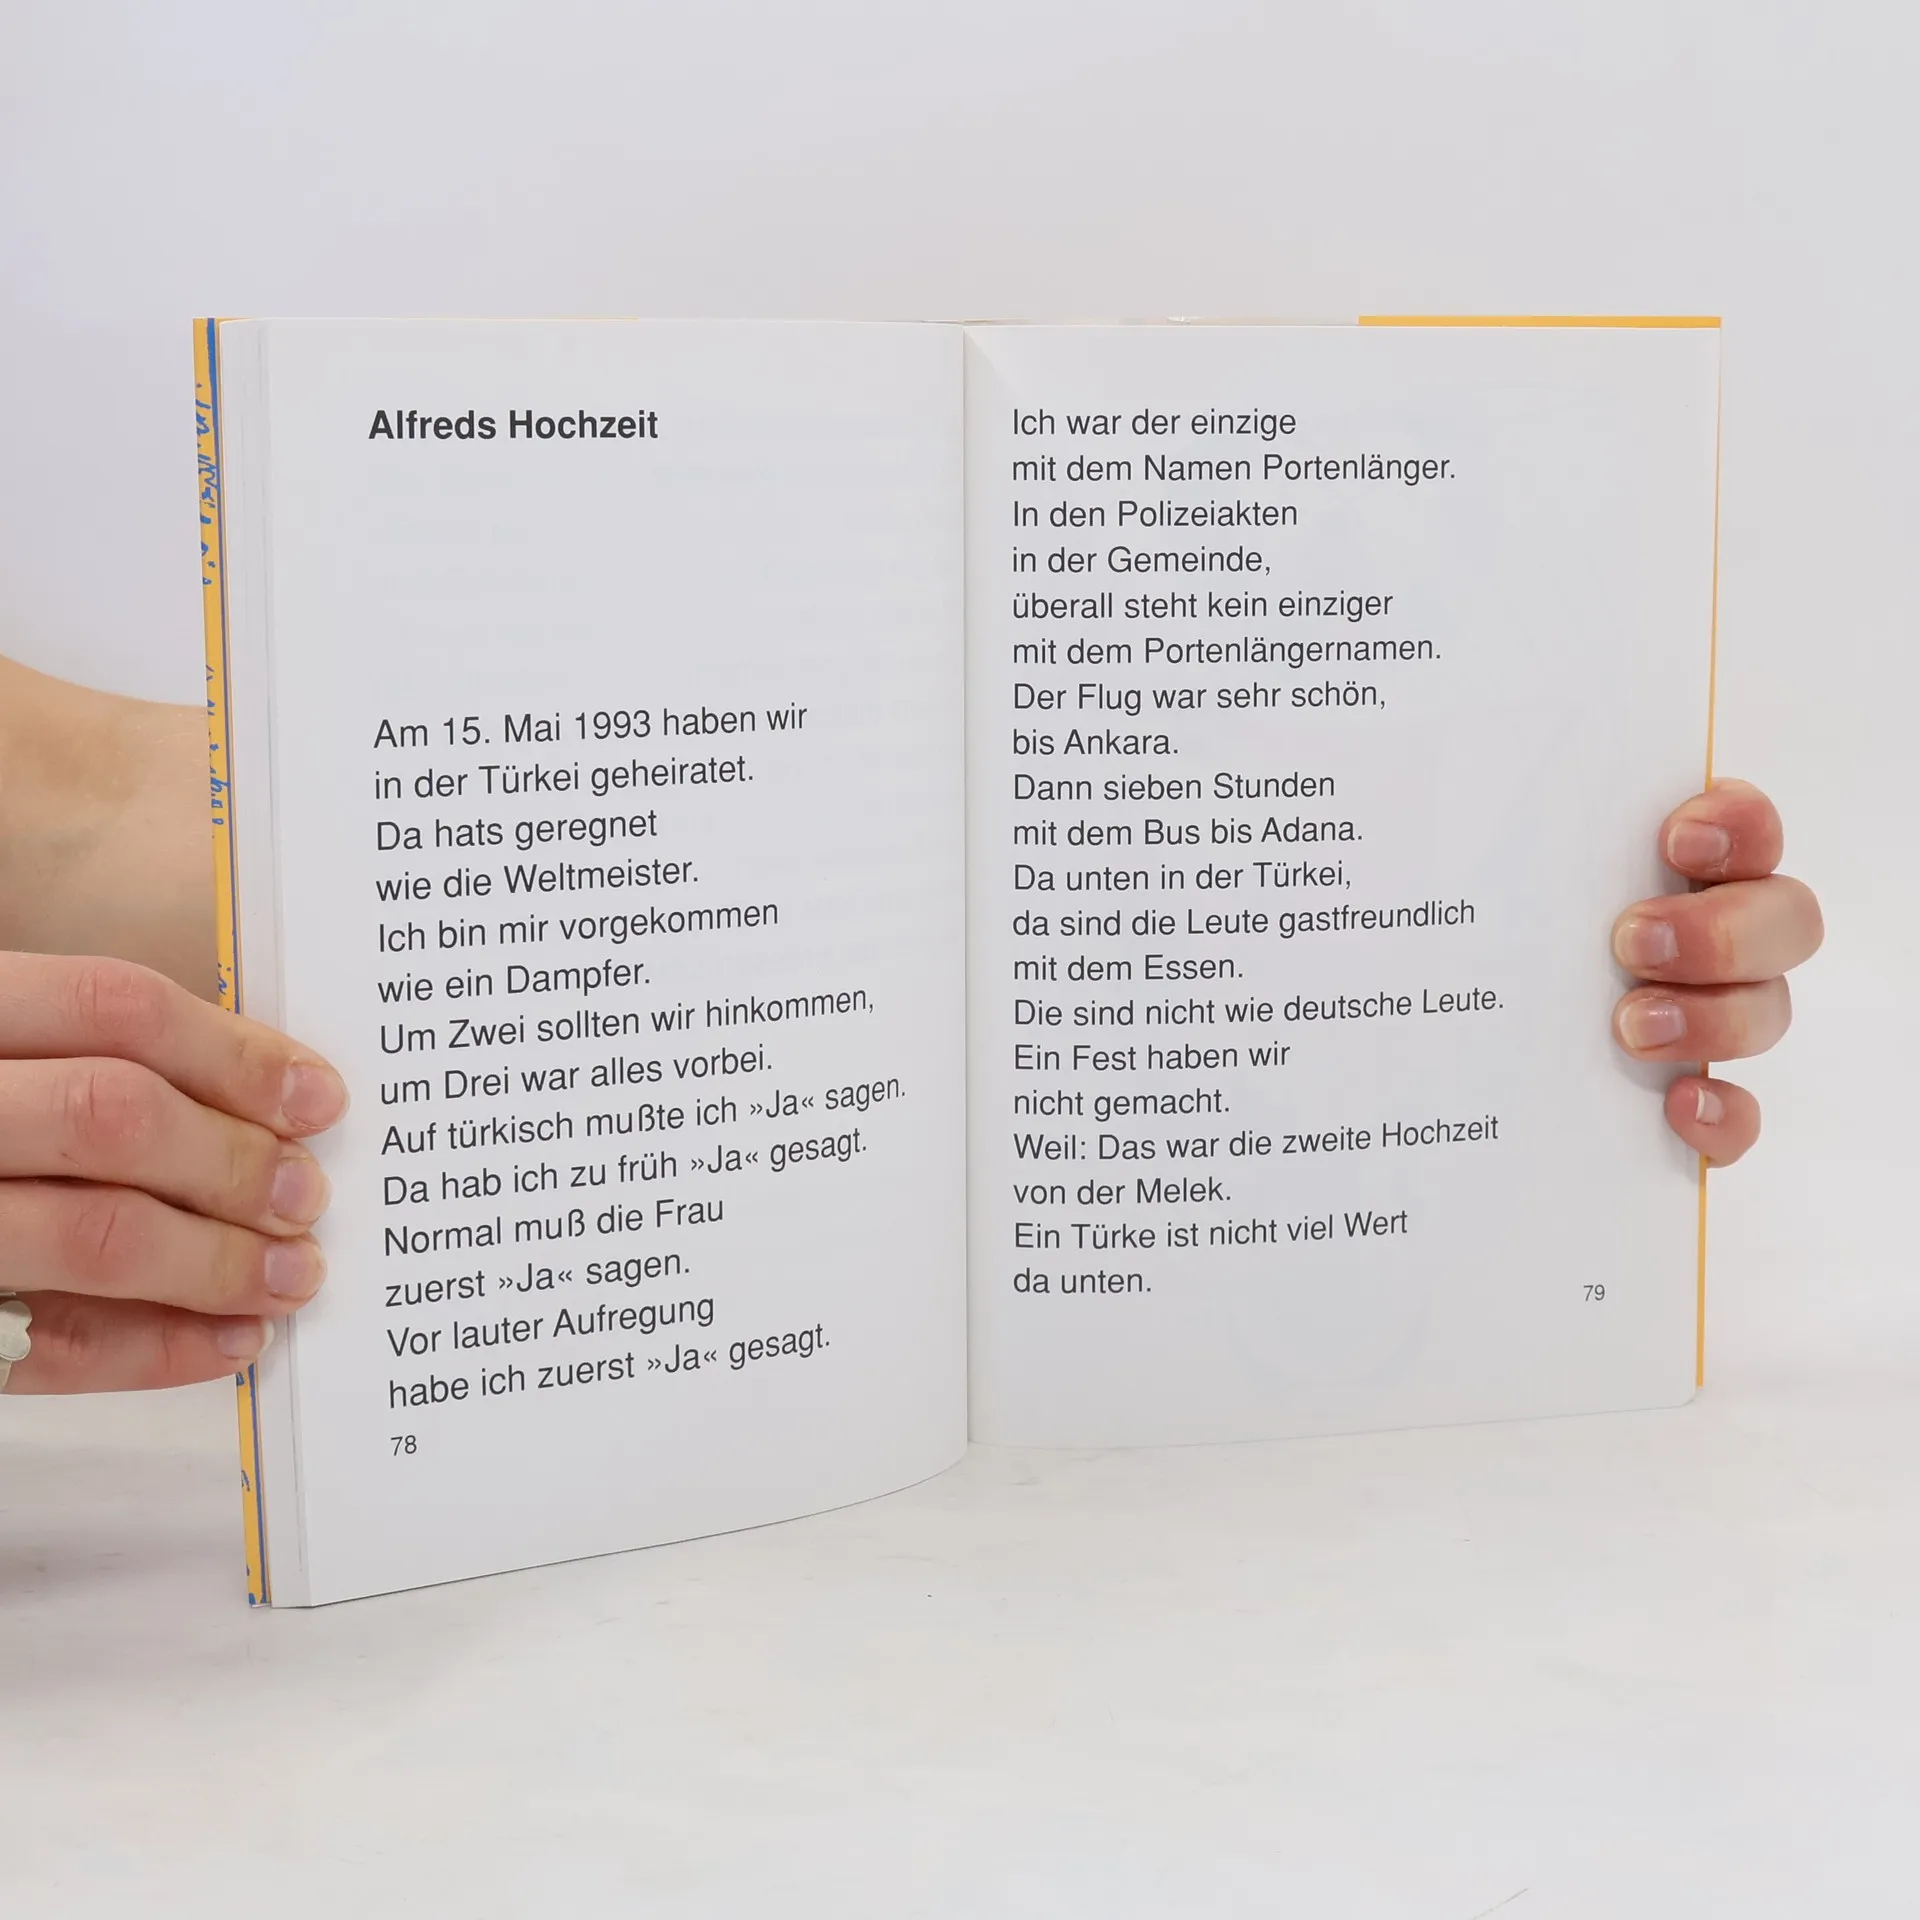 Alfreds Hochzeit
Am 15. Mai 1993 haben wir
in der Türkei geheiratet.
Da hats geregnet
wie die Weltmeister.
Ich bin mir vorgekommen
wie ein Dampfer.
Um Zwei sollten wir hinkommen,
um Drei war alles vorbei.
Auf türkisch mußte ich »Ja« sagen.
Da hab ich zu früh »Ja« gesagt.
Normal muß die Frau
zuerst »Ja« sagen.
Vor lauter Aufregung
habe ich zuerst »Ja« gesagt.
78
Ich war der einzige
mit dem Namen Portenlänger.
In den Polizeiakten
in der Gemeinde,
überall steht kein einziger
mit dem Portenlängernamen.
Der Flug war sehr schön,
bis Ankara.
Dann sieben Stunden
mit dem Bus bis Adana.
Da unten in der Türkei,
da sind die Leute gastfreundlich
mit dem Essen.
Die sind nicht wie deutsche Leute.
Ein Fest haben wir
nicht gemacht.
Weil: Das war die zweite Hochzeit
von der Melek.
Ein Türke ist nicht viel Wert
da unten.
79